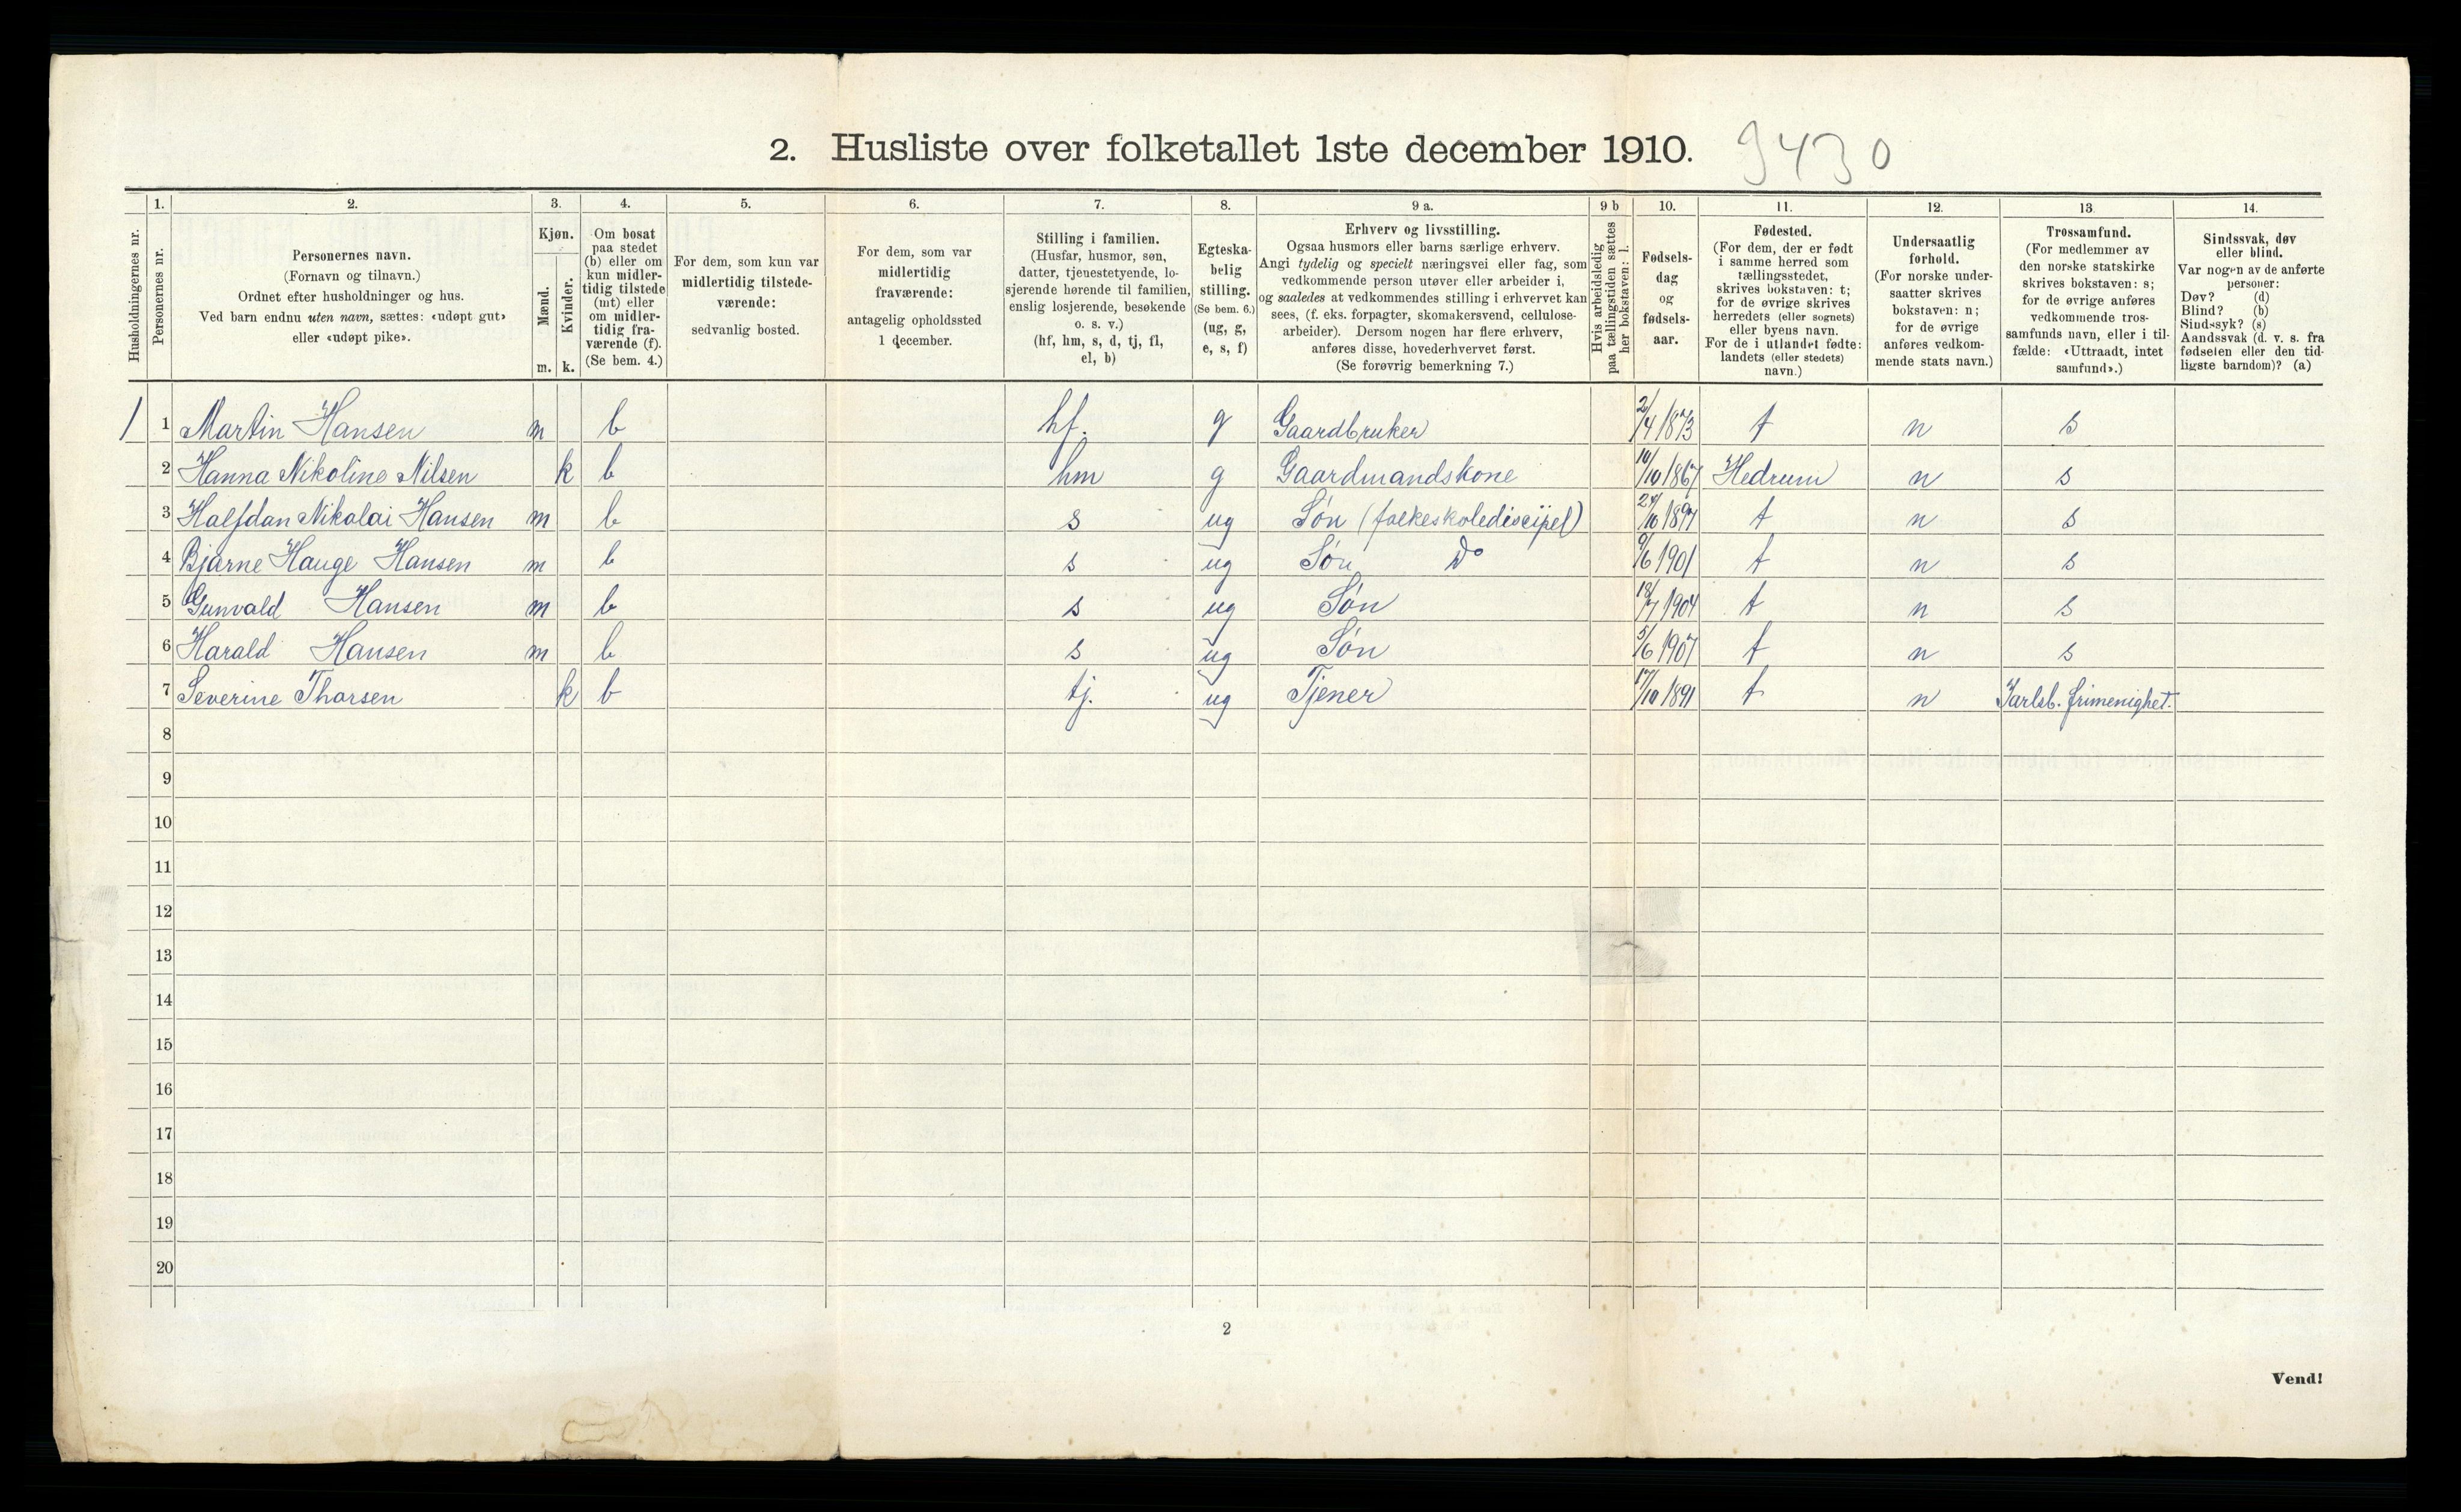 2. Husliste over folketallet 1ste december 1910. 9430
1. 2. 3. 4. 5. 6. 7. 8. 9 a. 9 b 10. 11. 12. 13. 14.
Husholdningernes nr.
Personernes nr.
Personernes navn.
(Fornavn og tilnavn.)
Ordnet efter husholdninger og hus.
Ved barn endnu uten navn, sættes: «udøpt gut»
eller «udøpt pike».
Kjøn.
Mænd.
Kvinder.
m. k.
Om bosat
paa stedet
(b) eller om
kun midler-
tidig tilstede
(mt) eller
om midler-
tidig fra-
værende (f).
(Se bem. 4.)
For dem, som kun var
midlertidig tilstede-
værende:
sedvanlig bosted.
For dem, som var
midlertidig
fraværende:
antagelig opholdssted
1 december.
Stilling i familien.
(Husfar, husmor, søn,
datter, tjenestetyende, lo-
sjerende hørende til familien,
enslig losjerende, besøkende
o. s. v.)
(hf, hm, s, d, tj, fl,
el, b)
Egteska-
belig
stilling.
(Se bem. 6.)
(ug, g,
e, s, f)
Erhverv og livsstilling.
Ogsaa husmors eller barns særlige erhverv.
Angi tydelig og specielt næringsvei eller fag, som
vedkommende person utøver eller arbeider i,
og saaledes at vedkommendes stilling i erhvervet kan
sees, (f. eks. forpagter, skomakersvend, cellulose-
arbeider). Dersom nogen har flere erhverv,
anføres disse, hovederhvervet først.
(Se forøvrig bemerkning 7.)
Hvis arbeidsledig
paa tællingstiden sættes
her bokstaven: l.
Fødsels-
dag
og
fødsels-
aar.
Fødested.
(For dem, der er født
i samme herred som
tællingsstedet,
skrives bokstaven: t;
for de øvrige skrives
herredets (eller sognets)
eller byens navn.
For de i utlandet fødte:
landets (eller stedets)
navn.)
Undersaatlig
forhold.
(For norske under-
saatter skrives
bokstaven: n;
for de øvrige
anføres vedkom-
mende stats navn.)
Trossamfund.
(For medlemmer av
den norske statskirke
skrives bokstaven: s;
for de øvrige anføres
vedkommende tros-
samfunds navn, eller i til-
fælde: «Uttraadt, intet
samfund».)
Sindssvak, døv
eller blind.
Var nogen av de anførte
personer:
Døv? (d)
Blind? (b)
Sindssyk? (s)
Aandssvak (d. v. s. fra
fødselen eller den tid-
ligste barndom)? (a)
1 1 Martin Hansen m b hf. g Gaardbruker 2/4 1873 t n s
2 Hanna Nikoline Nilsen k b hm g Gaardmandskone 10/10 1867 Hedrum n s
3 Halfdan Nikolai Hansen m b s ug Søn (folkeskoledicipel) 24/10 1897 t n s
4 Bjarne Hauge Hansen m b s ug Søn Do 9/6 1901 t n s
5 Gunvald Hansen m b s ug Søn 18/7 1904 t n s
6 Harald Hansen m b s ug Søn 5/6 1907 t n s
7 Severine Thorsen k b tj. ug Tjener 17/10 1891 t n Jarlsb. frimenighet.
8
9
10
11
12
13
14
15
16
17
18
19
20
2
Vend!